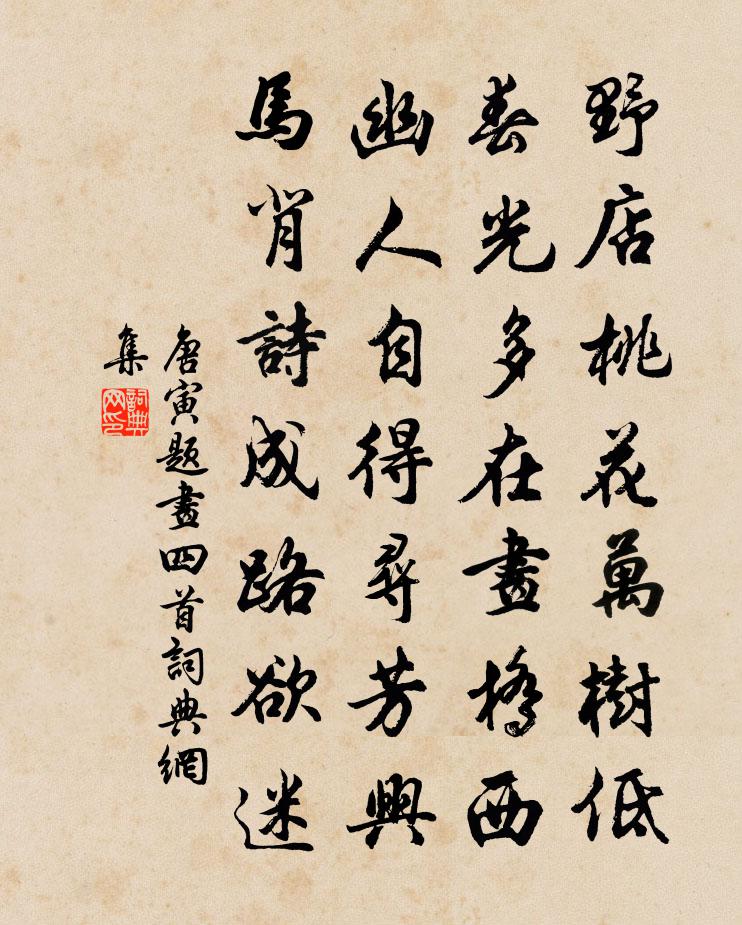 野店桃花萬樹低
春光多在畫橋西
幽人自得尋芳興
馬背詩成路欲迷
唐寅題畫四首詞典網
集
詞典網印